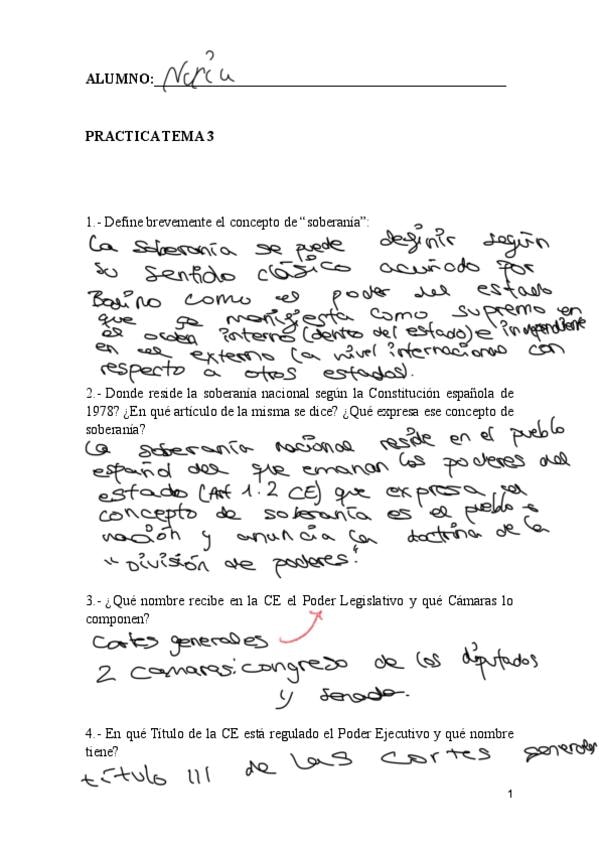 ALUMNO: Nuria
PRACTICA TEMA 3
1.- Define brevemente el concepto de “soberanía”:
La soberanía se puede definir según
su sentido clásico acuñado por
Bodino como es poder del estado
que se manifiesta como supremo en
el orden interno (dentro del estado) e independiente
en el externo (a nivel internacional con
respecto a otros estados).
2.- Donde reside la soberanía nacional según la Constitución española de
1978? ¿En qué artículo de la misma se dice? ¿Qué expresa ese concepto de
soberanía?
La soberanía nacional reside en el pueblo
español del que emanan los poderes del
estado (Art 1.2 CE) que expresa el
concepto de soberanía es el pueblo o
nación y anuncia la doctrina de la
“División de poderes”.
3.- ¿Qué nombre recibe en la CE el Poder Legislativo y qué Cámaras lo
componen?
Cortes generales
2 camaras: congreso de los diputados
y senado.
4.- En qué Título de la CE está regulado el Poder Ejecutivo y qué nombre
tiene?
título III de las cortes generales
1